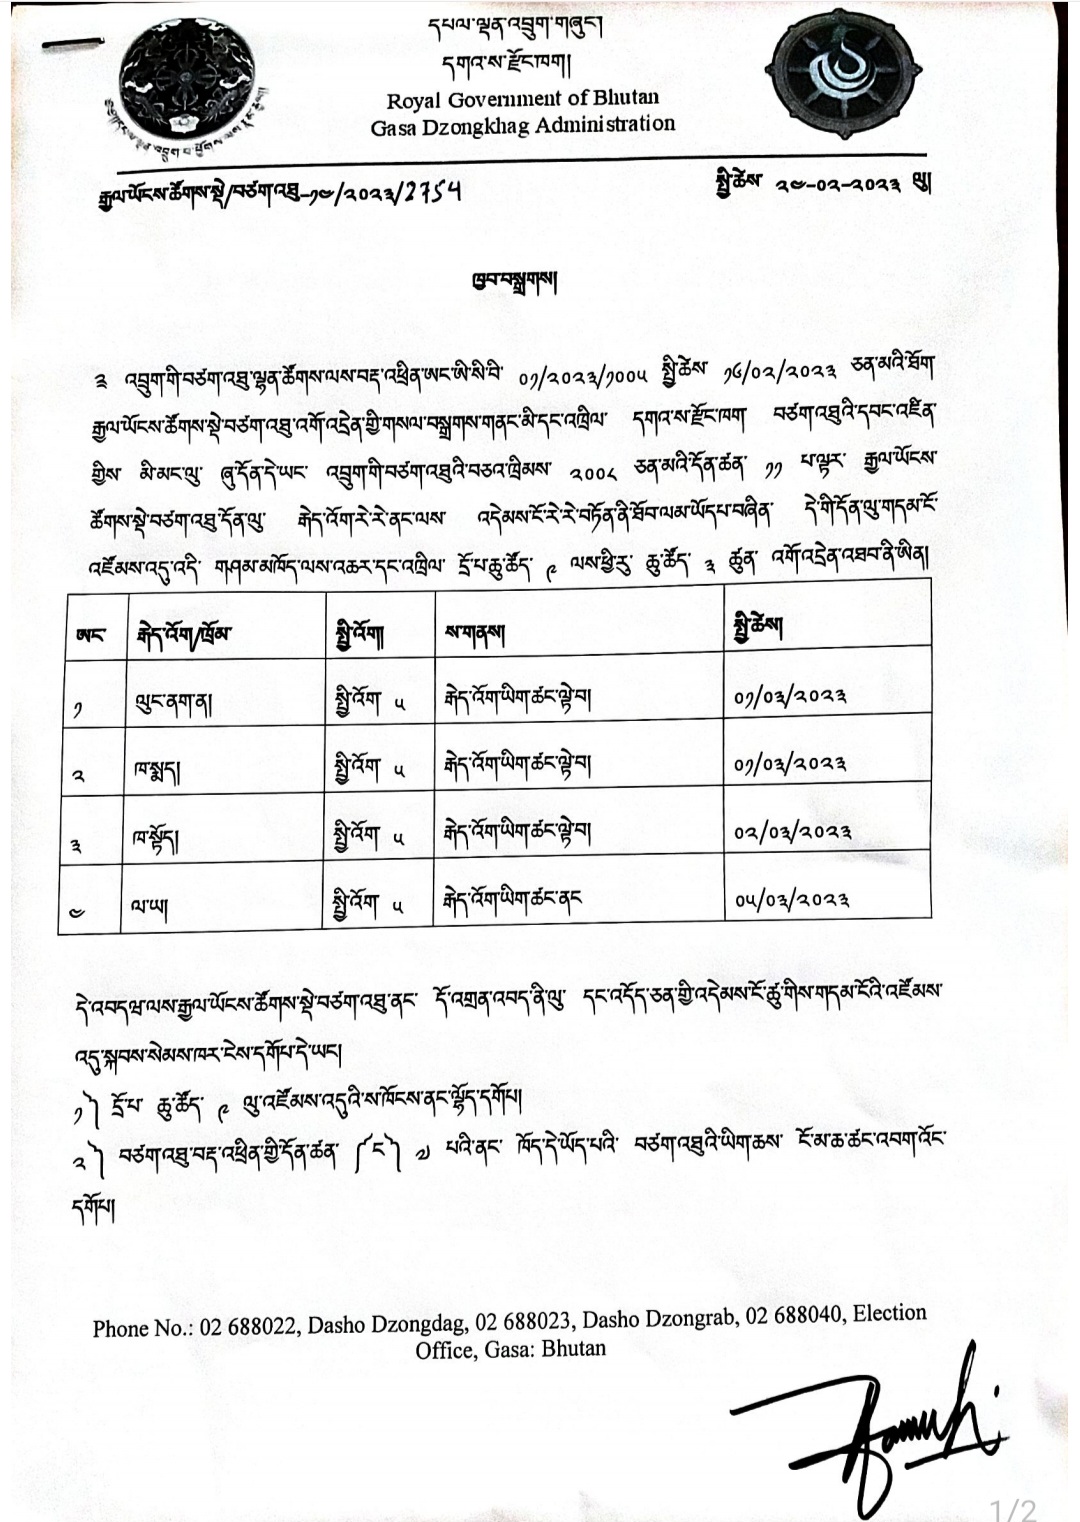 དཔལ་ལྡན་འབྲུག་གཞུང་།
དགའ་ས་རྫོང་ཁག།
Royal Government of Bhutan
Gasa Dzongkhag Administration
རྒྱལ་ཡོངས་ཚོགས་སྡེ/བཙག་འཐུ-༡༤/༢༠༢༣/2754
སྤྱི་ཚེས་ ༢༤-༠༢-༢༠༢༣ ལུ།
ཁྱབ་བསྒྲགས།
༣ འབྲུག་གི་བཙག་འཐུ་ལྷན་ཚོགས་ལས་བརྡ་འཕྲིན་ཨང་ཨི་སི་བི་ ༠༡/༢༠༢༣/༡༠༠༥ སྤྱི་ཚེས་ ༡༦/༠༢/༢༠༢༣ ཅན་མའི་ཐོག
རྒྱལ་ཡོངས་ཚོགས་སྡེ་བཙག་འཐུ་འགོ་འདྲེན་གྱི་གསལ་བསྒྲགས་གནང་མི་དང་འཁྲིལ་ དགའ་ས་རྫོང་ཁག བཙག་འཐུའི་དབང་འཛིན་
གྱིས་ མི་མང་ལུ་ ཞུ་དོན་དེ་ཡང་ འབྲུག་གི་བཙག་འཐུའི་བཅའ་ཁྲིམས་ ༢༠༠༨ ཅན་མའི་དོན་ཚན་ ༡༡ པ་ལྟར་ རྒྱལ་ཡོངས་
ཚོགས་སྡེ་བཙག་འཐུ་དོན་ལུ་ རྒེད་འོག་རེ་རེ་ནང་ལས་ འདེམས་ངོ་རེ་རེ་བཏོན་ནི་ཐོབ་ལམ་ཡོདཔ་བཞིན་ དེ་གི་དོན་ལུ་གདམ་ངོ་
འཛོམས་འདུ་འདི་ གཤམ་མཁོད་ལས་འཆར་དང་འཁྲིལ་ དྲོ་པ་ཆུ་ཚོད་ ༩ ལས་ཕྱི་རུ་ ཆུ་ཚོད་ ༣ ཚུན་ འགོ་འདྲེན་འཐབ་ནི་ཨིན།
ཨང་ རྒེད་འོག/ཁྲོམ་ སྤྱི་འོག། ས་གནས། སྤྱི་ཚེས།
༡ ལུང་ནག་ན། སྤྱི་འོག ༥ རྒེད་འོག་ཡིག་ཚང་ལྟེ་བ། ༠༡/༠༣/༢༠༢༣
༢ ཁ་སྨད། སྤྱི་འོག ༥ རྒེད་འོག་ཡིག་ཚང་ལྟེ་བ། ༠༡/༠༣/༢༠༢༣
༣ ཁ་སྟོད། སྤྱི་འོག ༥ རྒེད་འོག་ཡིག་ཚང་ལྟེ་བ། ༠༢/༠༣/༢༠༢༣
༤ ལ་ཡ། སྤྱི་འོག ༥ རྒེད་འོག་ཡིག་ཚང་ནང་ ༠༥/༠༣/༢༠༢༣
དེ་འབདཝ་ལས་རྒྱལ་ཡོངས་ཚོགས་སྡེ་བཙག་འཐུ་ནང་ དོ་འགྲན་འབད་ནི་ལུ་ དང་འདོད་ཅན་གྱི་འདེམས་ངོ་ཚུ་གིས་གདམ་ངོའི་འཛོམས་
འདུ་སྐབས་སེམས་ཁར་ངེས་དགོཔ་དེ་ཡང།
༡༽ དྲོ་པ་ ཆུ་ཚོད་ ༩ ལུ་འཛོམས་འདུའི་ས་ཁོངས་ནང་ལྷོད་དགོཔ།
༢༽ བཙག་འཐུ་བརྡ་འཕྲིན་གྱི་དོན་ཚན་ ༼ང༽ ༧ པའི་ནང་ ཁོད་དེ་ཡོད་པའི་ བཙག་འཐུའི་ཡིག་ཆས་ ངོ་མ་ཆ་ཚང་འབག་འོང་
དགོཔ།
Phone No.: 02 688022, Dasho Dzongdag, 02 688023, Dasho Dzongrab, 02 688040, Election
Office, Gasa: Bhutan
1/2